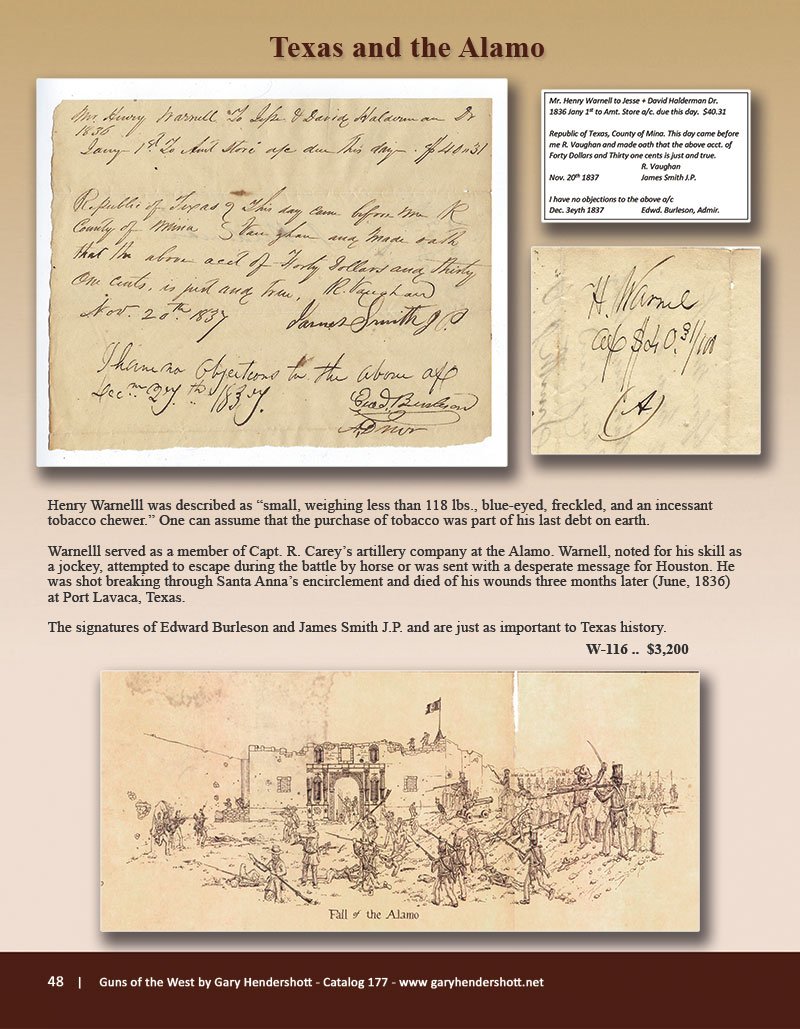 Texas and the Alamo
Mr. Henry Warnell To Jesse & David Halderman Dr
1836
Jany 1st To Amt Store a/c due this day - $40.31
Republic of Texas } This day came before me R
County of Mina } Vaughan and made oath
that the above acct of Forty Dollars and thirty
One cents, is just and true, R. Vaughan
Nov. 20th 1837 James Smith J P
I have no objections to the above a/c
Decm 27th 1837. Edwd. Burleson
Admor
Mr. Henry Warnell to Jesse + David Halderman Dr.
1836 Jany 1st to Amt. Store a/c. due this day. $40.31
Republic of Texas, County of Mina. This day came before
me R. Vaughan and made oath that the above acct. of
Forty Dollars and Thirty one cents is just and true.
R. Vaughan
Nov. 20th 1837 James Smith J.P.
I have no objections to the above a/c
Dec. 3eyth 1837 Edwd. Burleson, Admir.
H. Warnel
a/c $40.31/100
(A)
Henry Warnelll was described as “small, weighing less than 118 lbs., blue-eyed, freckled, and an incessant
tobacco chewer.” One can assume that the purchase of tobacco was part of his last debt on earth.
Warnelll served as a member of Capt. R. Carey’s artillery company at the Alamo. Warnell, noted for his skill as
a jockey, attempted to escape during the battle by horse or was sent with a desperate message for Houston. He
was shot breaking through Santa Anna’s encirclement and died of his wounds three months later (June, 1836)
at Port Lavaca, Texas.
The signatures of Edward Burleson and James Smith J.P. and are just as important to Texas history.
W-116 .. $3,200
Fall of the Alamo
48 | Guns of the West by Gary Hendershott - Catalog 177 - www.garyhendershott.net